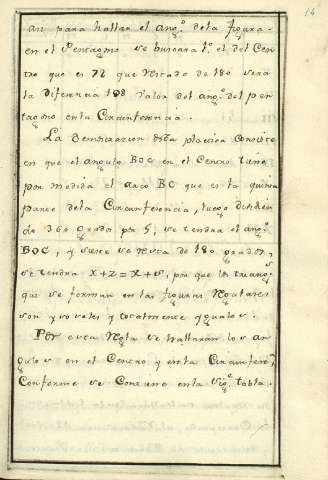 14
an para hallar el ang.º dela figura.
en el Pentagono se buscara 1.º el del Cen
tro que es 72 que restado de 180 sera
la diferencia 108 Valor del ang.º del pen
tagono enla Circunferencia.
La Demostracion desta practica Consiste
en que el angulo BOC en el Centro tiene
por medida el arco BC que es la quinta
parte dela Circunferencia, luego dividien
do 360 grados por 5, se tendra el ang.º
BOC, y si este se resta de 180 grados,
se tendra X+Z=X+S, por que los triang.s
que se forman en las figuras Regulares
son ysosceles y totalmente yguales.
Por esta Regla se hallaran los an
gulos en el Centro y enla Circunfer.ª
Conforme se Contiene enla sig.e tabla.